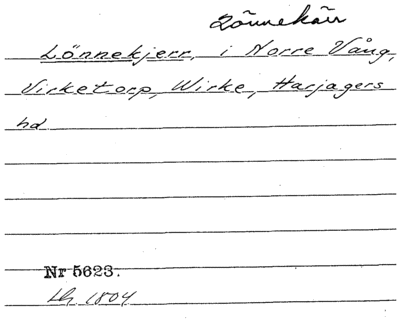 Lönnekärr
Lönnekjerr, i Norre Vång,
Virketorp, Wirke, Harjagers
hd
Nr 5623.
Lh 1804